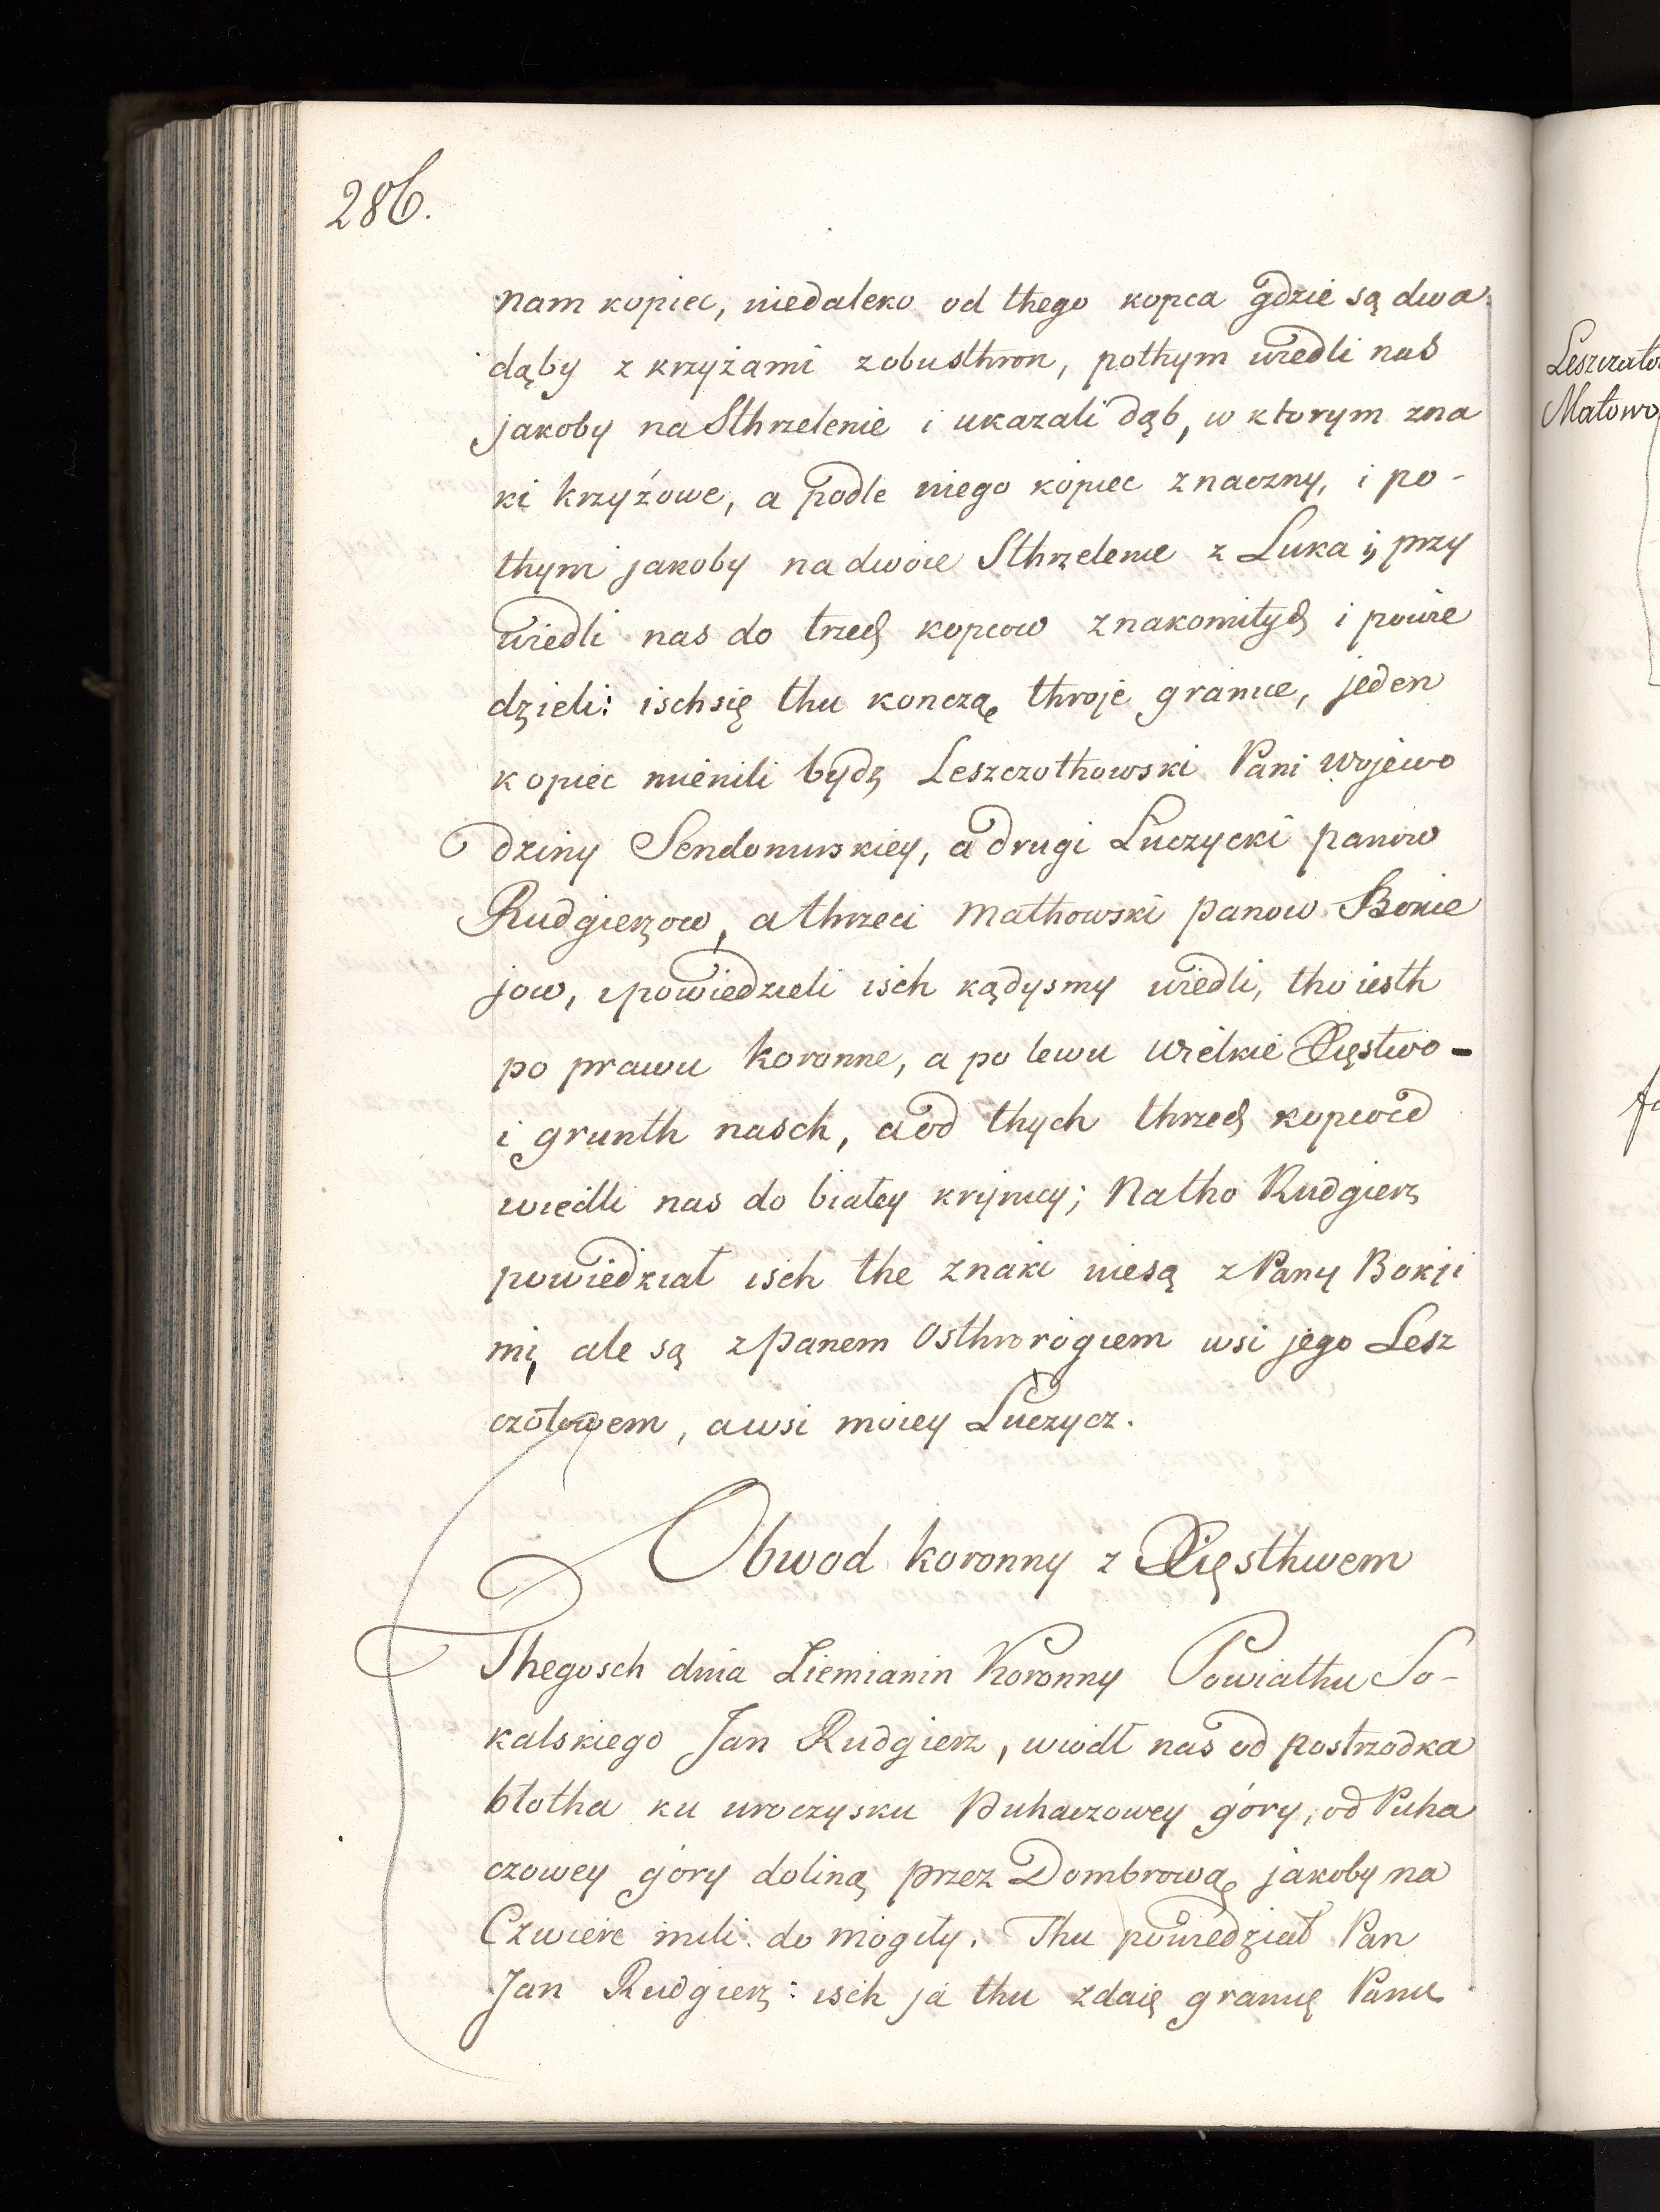 286.
nam kopiec, niedaleko od thego kopca gdzie są dwa
dąby z krzyżami zobusthron, pothym wiedli nas
jakoby na Sthrzelenie i ukazali dąb, w ktorym zna
ki krzyżowe, a podle niego kopiec znaczny, i po-
thym jakoby na dwoie Sthrzelenie z Luka i, przy
wiedli nas do trzech kopcow znakomitych i powie
dzieli: isch się thu konczą throje granice, jeden
kopiec mienili bydz Leszczothowski Pani Wojewo
dziny Sendomirskiey, a drugi Luczycki panow
Rudgierzow, a thrzeci Mathowski panow Bokie
jow, ipowiedzieli isch kądysmy wiedli, tho iesth
po prawu koronne, a po lewu Wielkie Xięstwo-
i grunth nasch, a od thych thrzech kopcow
wiedli nas do białey krynicy; Natho Rudgierz
powiedział isch the znaki niesą z Pany Bokji
mi, ale są z panem Osthrorogiem wsi jego Lesz
czotowem, a wsi moiey Luczycz.
Obwod koronny z Xięsthwem
Thegosch dnia Ziemianin Koronny Powiathu So-
kalskiego Jan Rudgierz, wiodł nas od postrzodka
błotha ku uroczysku Puhaczowey góry, od Puha
czowey góry doliną przez Dombrową jakoby na
Czwierc mili do mogiły. Thu powiedział Pan
Jan Rudgierz: isch ja thu zdaię granicę Panu
Leszczato
Matowo